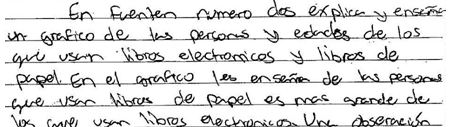 En Fuenten numero dos explica y enseña
un grafico de las personas y edades de los
que usan libros electronicos y libros de
papel. En el grafico les enseña de las personas
que usan libros de papel es mas grande de
los que usan libros electronicos. Una obseración